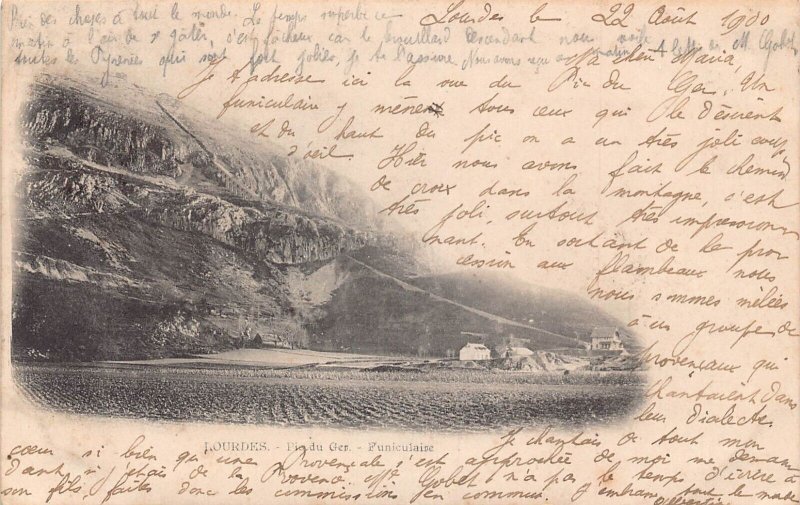 Lourdes le 22 Août 1900
Ma chère Maria,
J'adresse ici la vue du Pic du Ger. Un
funiculaire y mène tous ceux qui le désirent
et du haut du pic on a un très joli coup
d'oeil
Hier nous avons fait le chemin
de croix dans la montagne, c'est
très joli, surtout très impression
nant. En sortant de la pro
cession aux flambeaux nous
nous sommes mêlées
à un groupe de
Provençaux qui
chantaient dans
leur dialecte.
Je chantais de tout mon
coeur si bien que une Provençale s'est approchée de moi me deman
dant si j'étais de la Provence. Mme Gobet n'a pas le temps d'écrire à
son fils, faites donc les commissions en commun. J'embrasse tout le monde
LOURDES. - Pic du Ger. - Funiculaire
Bien des choses à tout le monde. Le temps superbe ce
matin à l'air de se gâter, c'est fâcheux car le brouillard descendant nous voile
toutes les Pyrénées qui sont jolies, je te l'assure. Nous avons reçu ce matin 1 lettre de M. Gobet